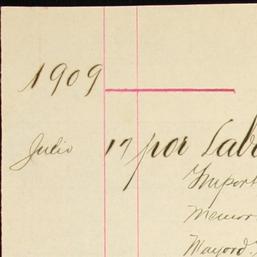 1909
Julio 17 por Lab
Import
Memor
Mayord.